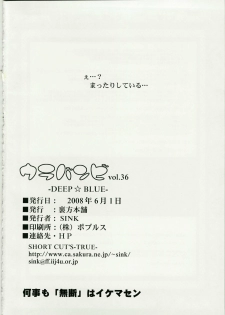 ぇ…？
まったりしている…
ウラバンビ vol.36
-DEEP☆BLUE-
■発行日： 2008年6月1日
■発行： 裏方本舗
■発行者： SINK
■印刷所：（株）ポプルス
■連絡先・HP
SHORT CUT'S-TRUE-
http://www.ca.sakura.ne.jp/~sink/
sink@ff.iij4u.or.jp
何事も「無断」はイケマセン